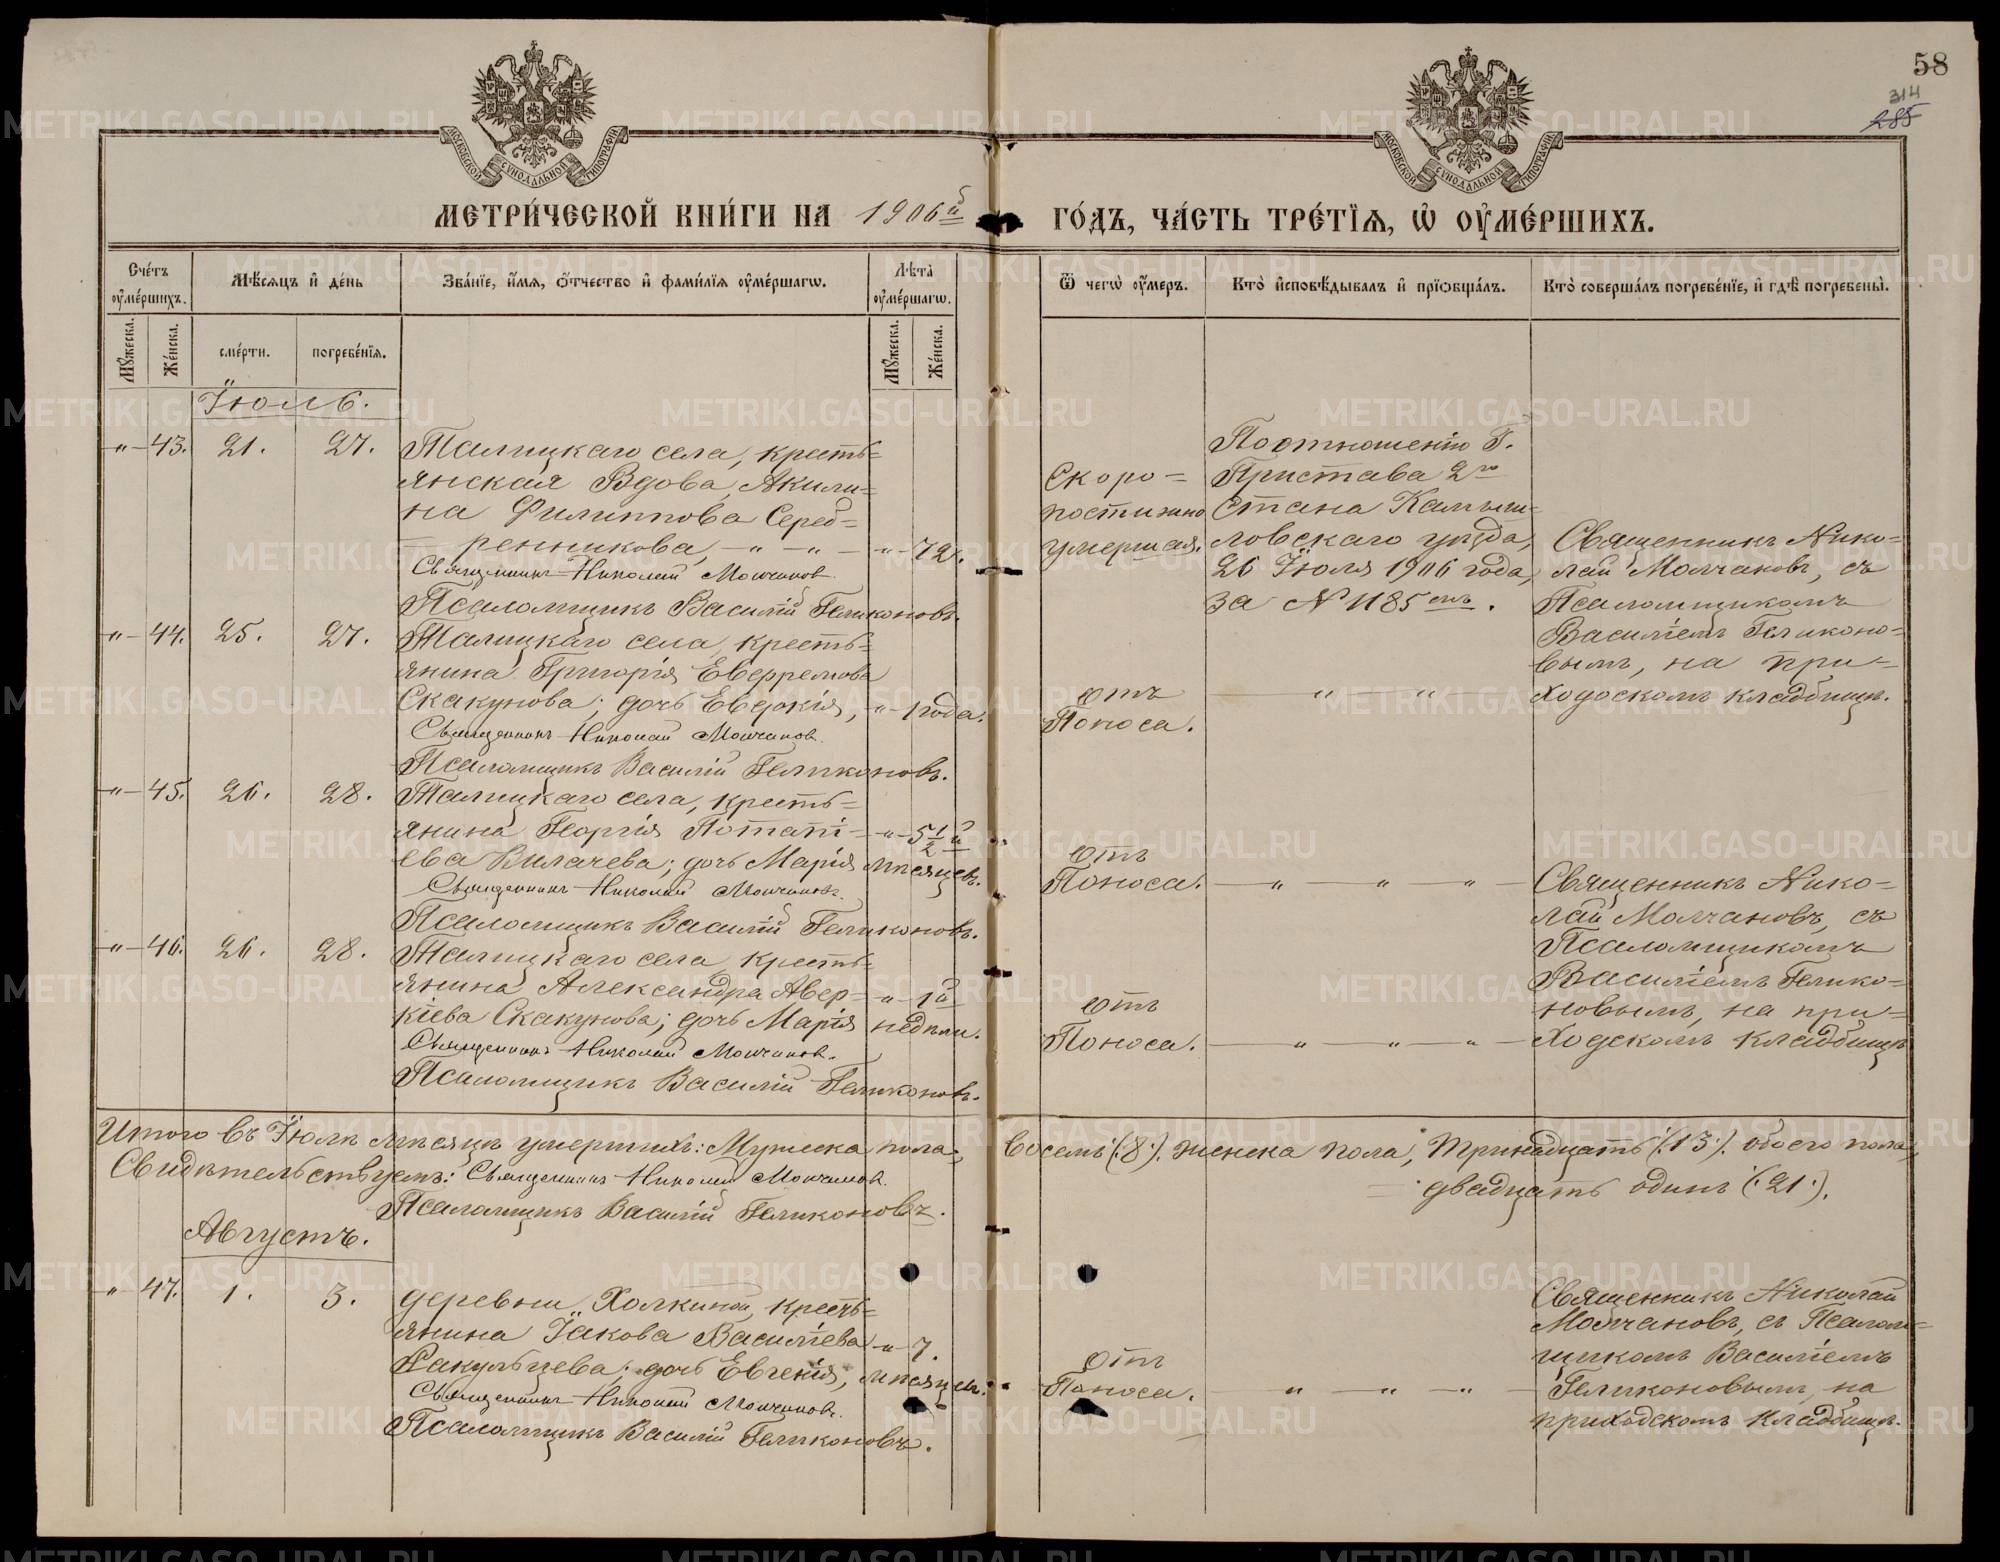 58
314
285
МОСКОВСКОЙ СѴНОДАЛЬНОЙ ТИПОГРАФІИ
МОСКОВСКОЙ СѴНОДАЛЬНОЙ ТИПОГРАФІИ
МЕТРИ́ЧЕСКОЙ КНИ́ГИ НА 1906й
ГО́ДЪ, ЧА́СТЬ ТРЕ́ТІѦ, Ѡ҆ ОУ҆МЕ́РШИХЪ.
Сче́тъ оу҆ме́ршихъ.
Мѣ́сѧцъ и҆ де́нь
Зва́нїе, и҆́мѧ, ѻ҆́тчество и҆ фами́лїѧ оу҆ме́ршагѡ.
Лѣ́та оу҆ме́ршагѡ.
Ѿ чегѡ̀ оу҆́меръ.
Кто̀ и҆сповѣ́дывалъ и҆ прїѻбща́лъ.
Кто̀ соверша́лъ погребе́нїе, и҆ гдѣ̀ погребены̀.
Мꙋ́жеска.
Же́нска.
сме́рти.
погребе́нїѧ.
Мꙋ́жеска.
Же́нска.
Іюль.
„ 43. 21. 27.
Талицкаго села, кресть=
янская Вдова, Акили=
на Филиппова Сереб=
ренникова, — „ — „ — „ — 72.
Священникъ Николай Молчановъ.
Псаломщикъ Василій Геликоновъ.
Скоро=
постижно
умершая.
По отношенію Г.
Пристава 2го
Стана Камыш=
ловскаго уѣзда,
26 Іюля 1906 года,
за N 1185 омъ.
Священникъ Нико=
лай Молчановъ, съ
Псаломщикомъ
Василіемъ Геликоно=
вымъ, на при=
ходскомъ кладбищѣ.
„ 44. 25. 27.
Талицкаго села, кресть=
янина Григорія Евфремова
Скакунова; дочь Евдокія, „ 1 года.
Священникъ Николай Молчановъ.
Псаломщикъ Василій Геликоновъ.
отъ
Поноса.
— „ — „ —
„ 45. 26. 28.
Талицкаго села, кресть=
янина Георгія Потапі= „ 5 1/2 й
ева Вилачева; дочь Марія мѣсяцевъ.
Священникъ Николай Молчановъ.
Псаломщикъ Василій Геликоновъ.
отъ
Поноса. — „ — „ — „ —
Священникъ Нико=
лай Молчановъ, съ
Псаломщикомъ
Василіемъ Гелико=
новымъ, на при=
ходскомъ кладбищѣ
„ 46. 26. 28.
Талицкаго села кресть=
янина Александра Авер= „ 1й
кіева Скакунова; дочь Марія недѣли.
Священникъ Николай Молчановъ.
Псаломщикъ Василій Геликоновъ.
отъ
Поноса. — „ — „ — „ —
Итого въ Іюлѣ мѣсяцѣ умершихъ: Мужеска пола, восемь (:8:). женска пола, тринадцать (:13:). обоего пола,
двадцать одинъ (:21:).
Свидѣтельствуемъ: Священникъ Николай Молчановъ.
Псаломщикъ Василій Геликоновъ.
Августъ.
„ 47. 1. 3.
деревни „Холкиной, кресть=
янина Іакова Василіева „ 7.
Ракульцева; дочь Евгенія, мѣсяцевъ.
Священникъ Николай Молчановъ.
Псаломщикъ Василій Геликоновъ.
отъ
Поноса. — „ — „ — „ —
Священникъ Николай
Молчановъ, съ Псалом=
щикомъ Василіемъ
Геликоновымъ, на
приходскомъ кладбищѣ.
METRIKI.GASO-URAL.RU